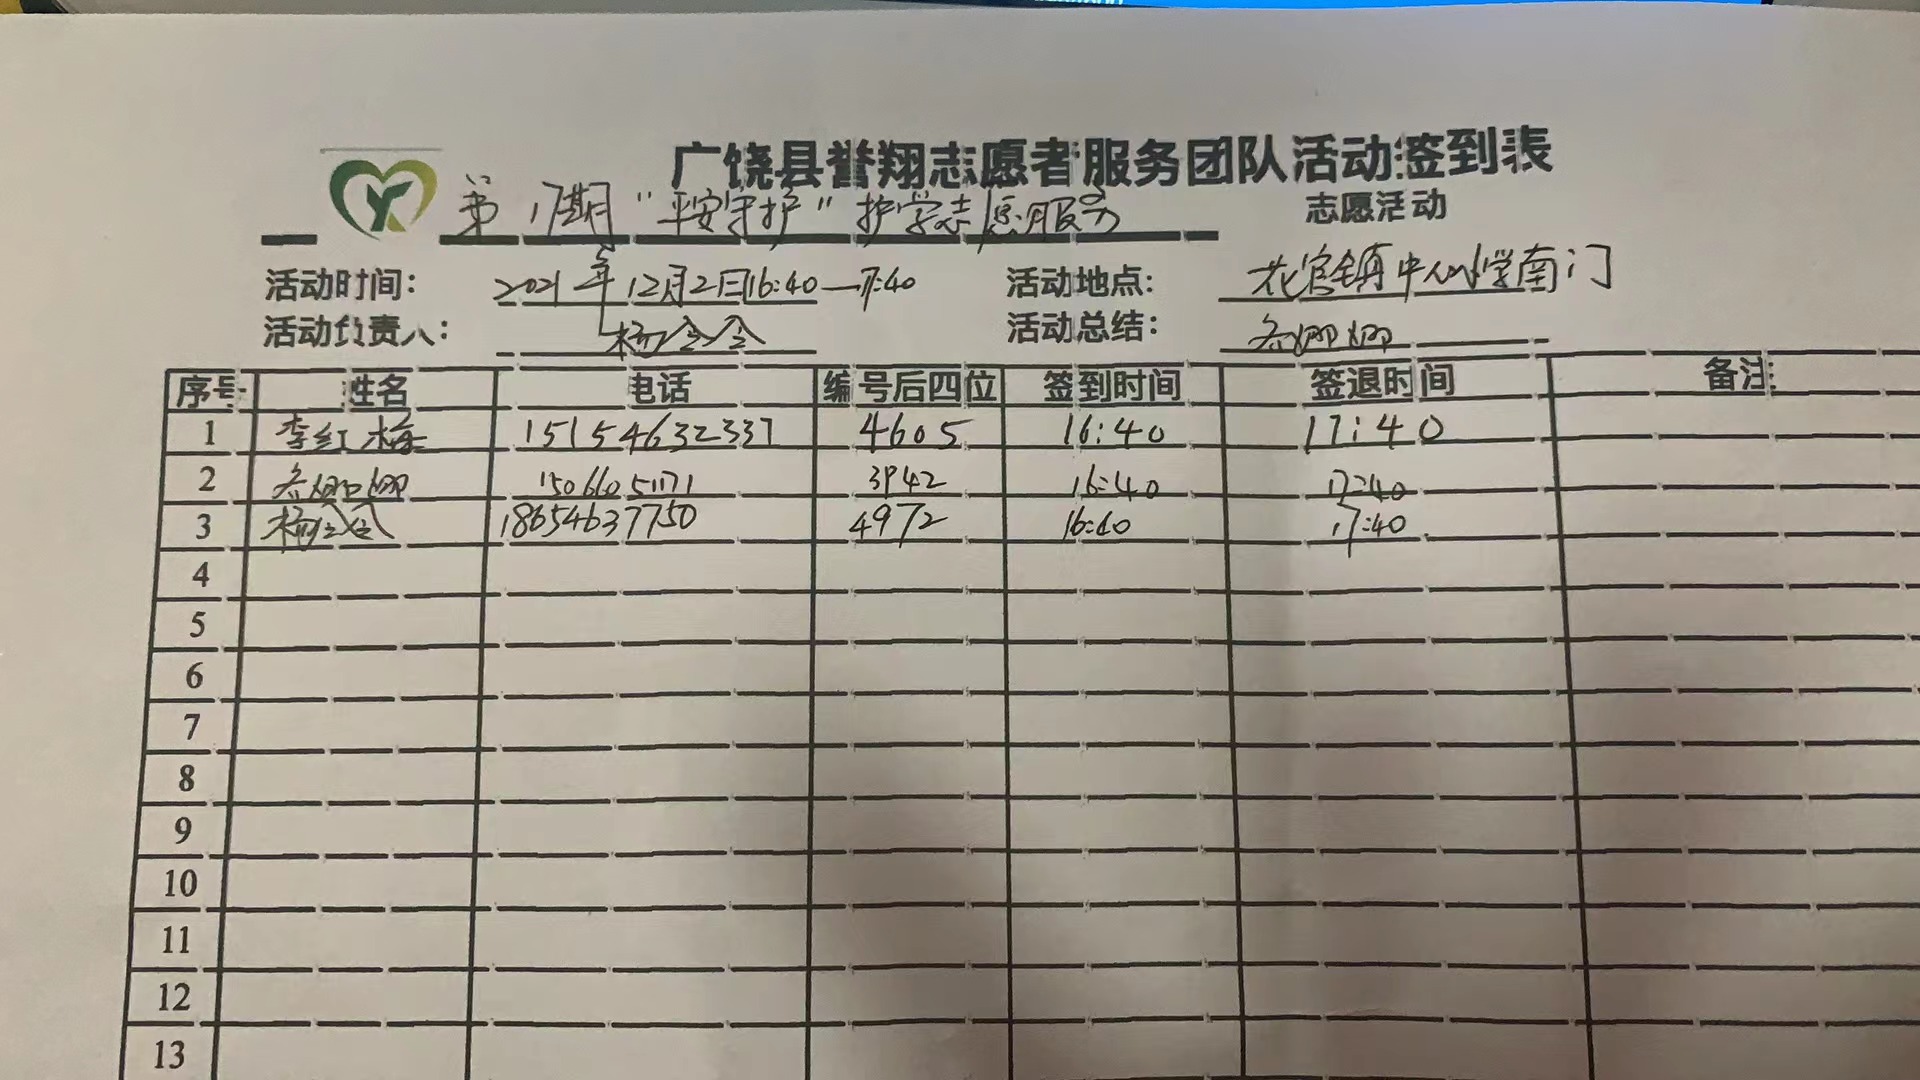 广饶县誉翔志愿者服务团队活动签到表
第17期“平安守护”护学志愿服务 志愿活动
活动时间: 2021年12月2日16:40—17:40 活动地点: 花官镇中心小学南门
活动负责人: 杨会会 活动总结: 娜娜
序号 姓名 电话 编号后四位 签到时间 签退时间 备注
1 李红梅 15154632337 4605 16:40 17:40
2 娜娜 15066051171 3942 16:40 17:40
3 杨会会 18654637750 4972 16:40 17:40
4
5
6
7
8
9
10
11
12
13